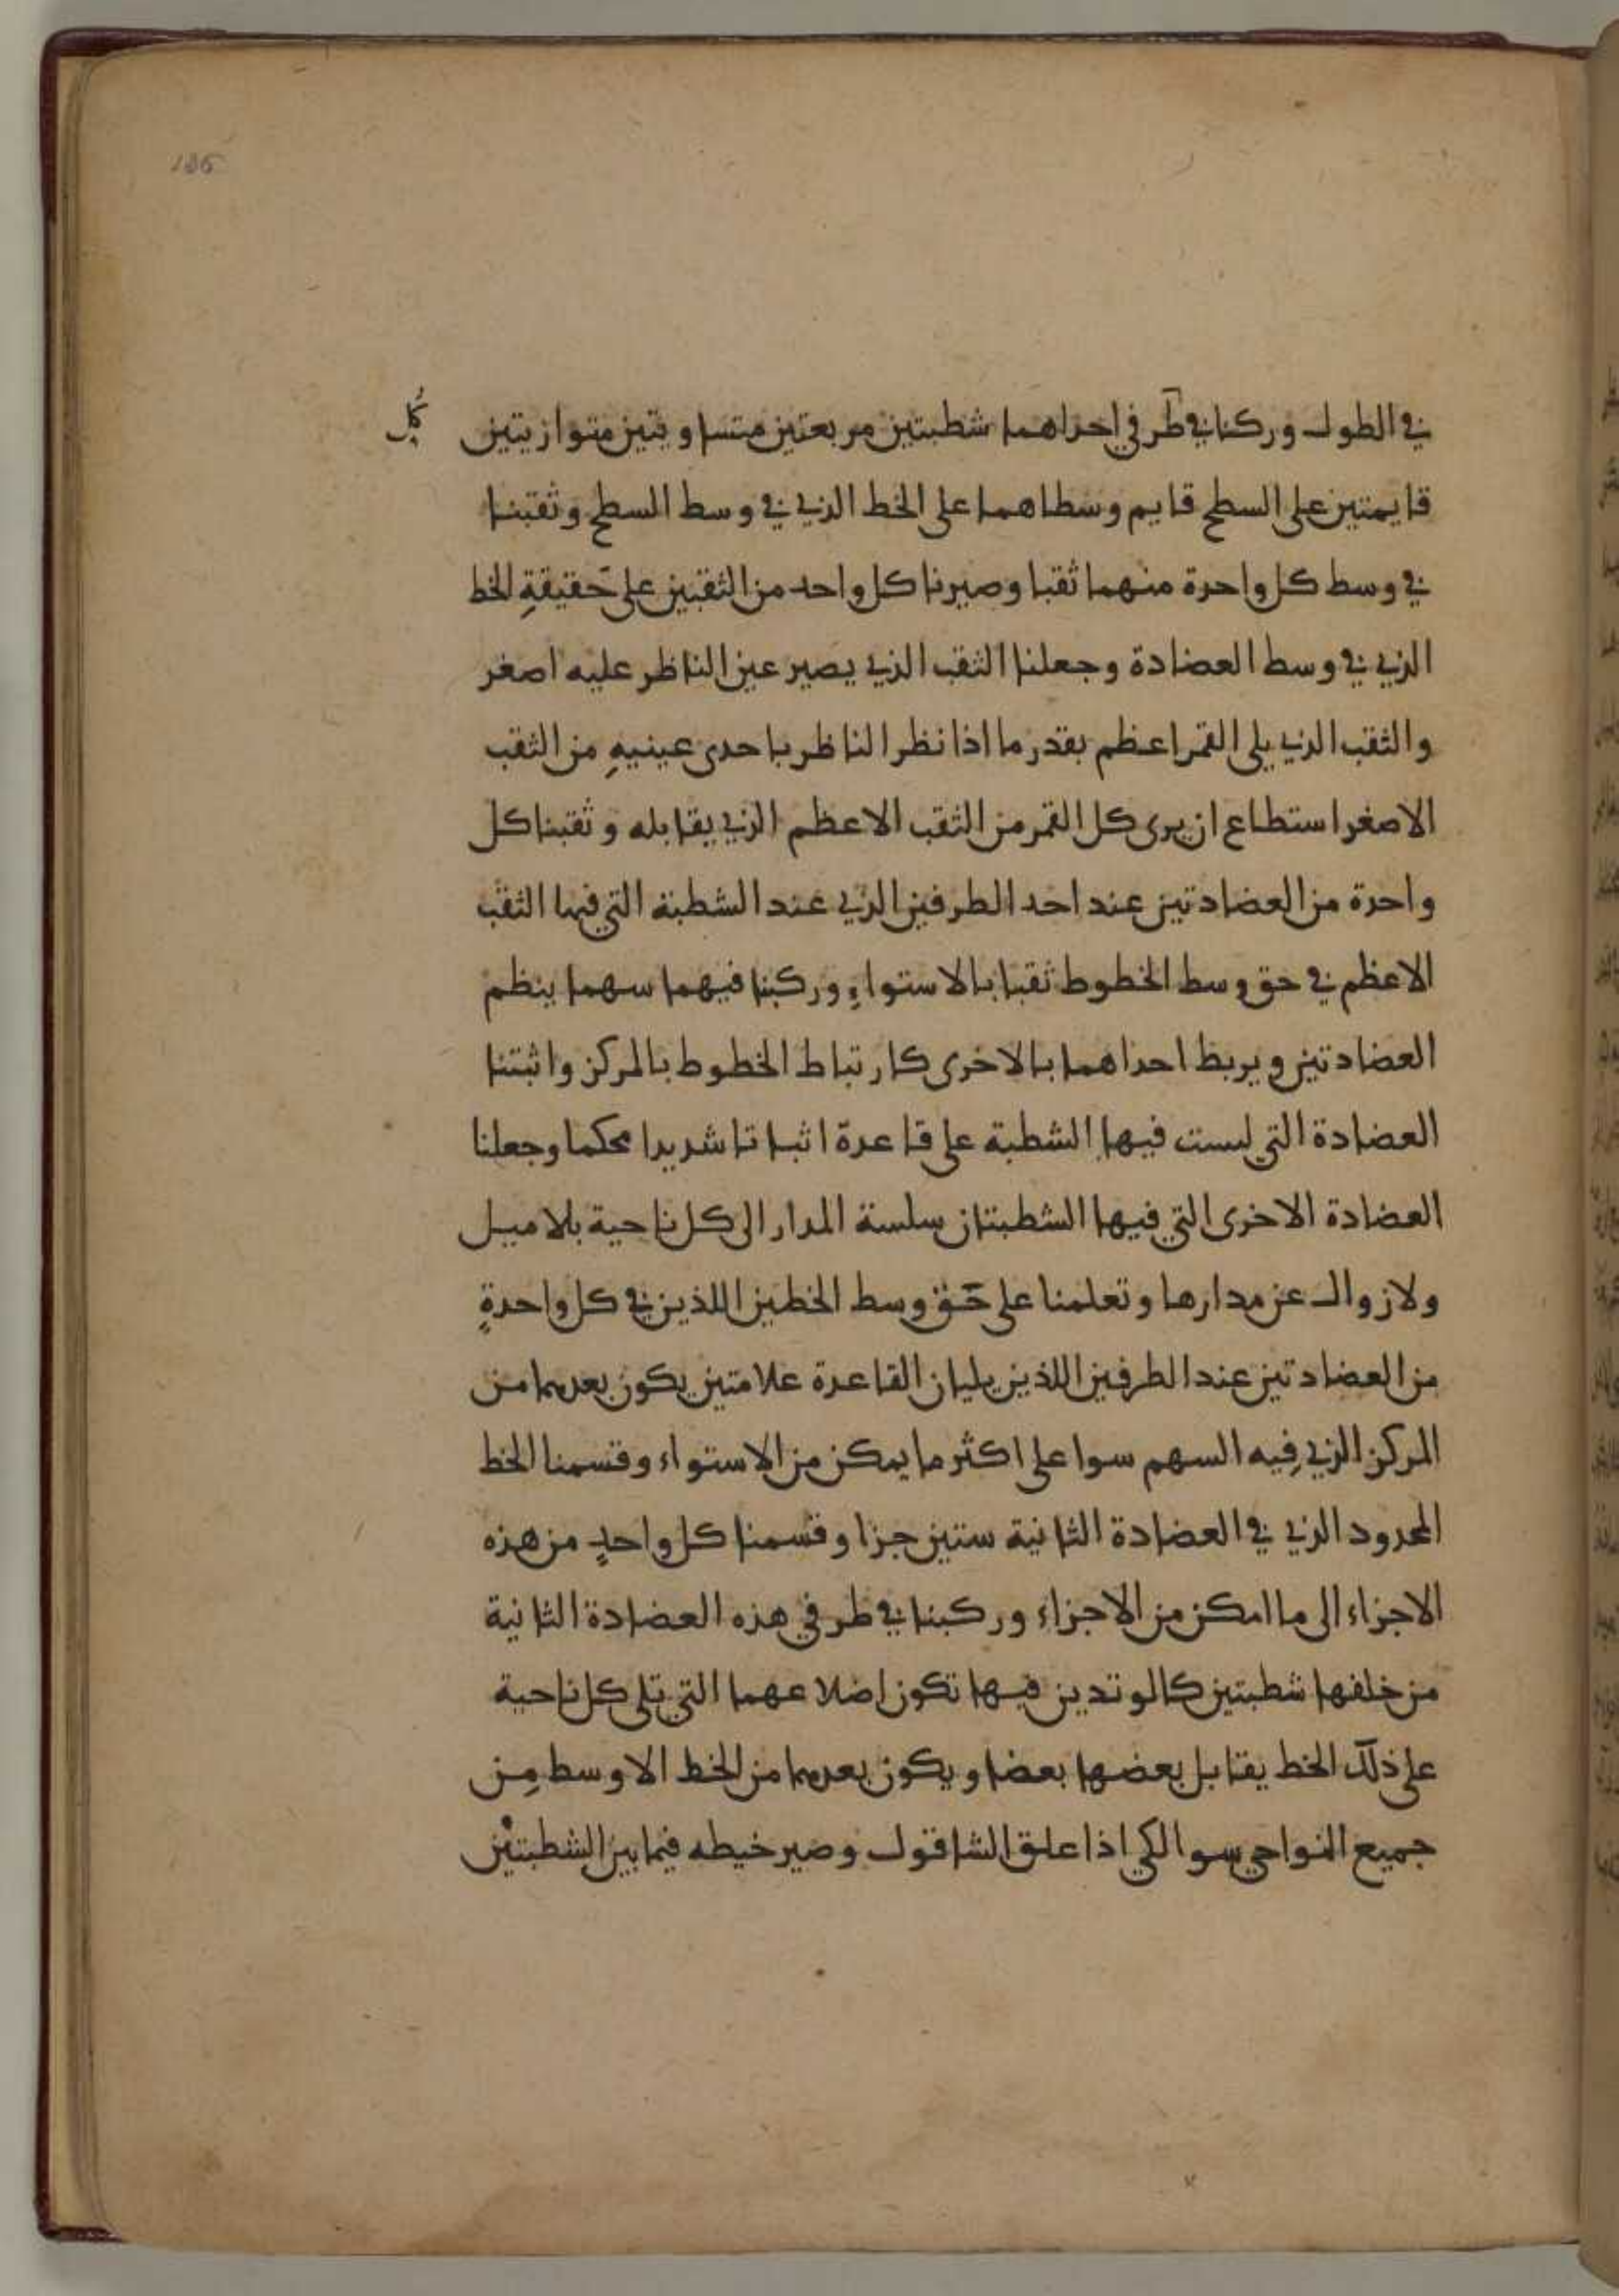 135
في الطول وركنا في طرفي احداهما شطبتين مربعتين متساويتين متوازيتين كل
قايمتين على السطح قايم وسطاهما على الخط الذي في وسط السطح وثقبنا
في وسط كل واحدة منهما ثقبا وصيرنا كل واحد من الثقبين على حَقيقةِ الخط
الذي في وسط العضادة وجعلنا الثقب الذي يصير عين الناظر عليه اصغر
والثقب الذي يلى القمر اعظم بقدر ما اذا نظر الناظر باحدى عينيهِ من الثقب
الاصغر استطاع ان يرى كل القمر من الثقب الاعظم الذي يقابله وثقبنا كل
واحدة من العضادتين عند احد الطرفين الذي عند الشطبة التي فيها الثقب
الاعظم في حق وسط الخطوط ثقبا بالاستواءِ وركبنا فيهما سهما ينظم
العضادتين ويربط احداهما بالاخرى كارتباط الخطوط بالمركز واثبتنا
العضادة التي ليست فيها الشطبة على قاعدة اثباتا شديدا محكما وجعلنا
العضادة الاخرى التي فيها الشطبتان سلسة المدار الى كل ناحية بلا ميل
ولا زوال عن مدارها وتعلمنا على حَق وسط الخطين اللذين في كل واحدةٍ
من العضادتين عند الطرفين اللذين يليان القاعدة علامتين يكون بعدهما من
المركز الذي فِيه السهم سوا على اكثر ما يمكن من الاستواء وقسمنا الخط
المحدود الذي في العضادة الثانية ستين جزا وقسمنا كل واحدٍ من هذه
الاجزاء الى ما امكن من الاجزاء وركبنا في طرفي هذه العضادة الثانية
من خلفها شطبتين كالوتدين فيها تكون اضلاعهما التي تلى كل ناحية
على ذلك الخط يقابل بعضها بعضا ويكون بعدهما من الخط الاوسط مِن
جميع النواحي سوا لكي اذا علق الشاقول وصير خيطه فيما بين الشطبتين